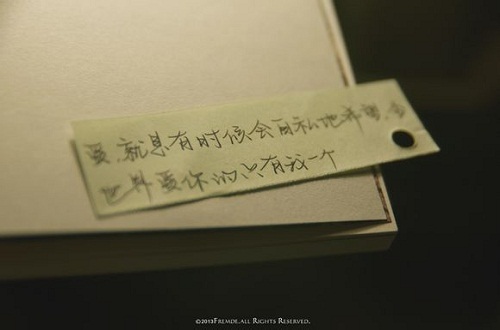 爱,就是有时候会自私地希望,全
世界爱你的只有我一个
©2013FREMDE.ALL RIGHTS RESERVED.